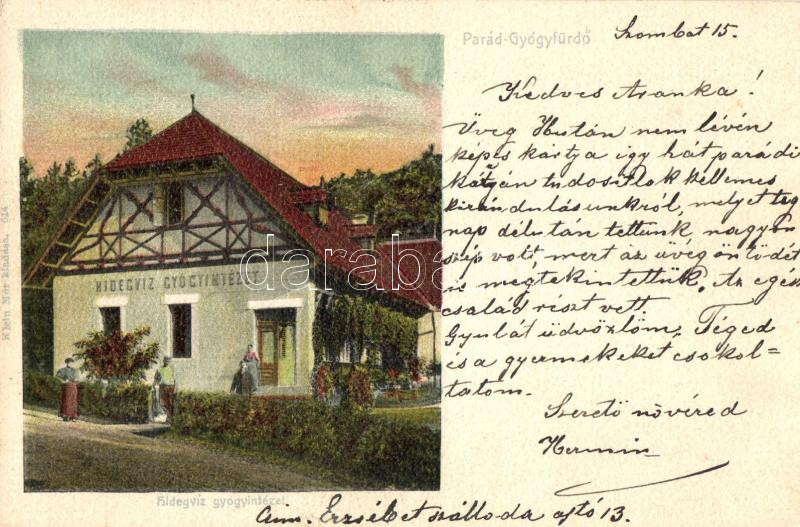 Parád-Gyógyfürdő
Szombat 15.
Kedves Aranka!
Üveg Hután nem lévén
képes kártya így hát parádi
kátyán tudosítlok kellemes
kirándulásunkról, melyet teg
nap délután tettünk nagyon
szép volt mert az üveg öntödét
is megtekintettük. Az egész
család részt vett.
Gyulát üdvözlöm, Téged
és a gyermekeket csokol=
tatom.
Szerető nővéred
Hermin
HIDEGVIZ GYÓGYINTÉZET
darabanth
Klein Mór kiadása. 614
Hidegviz gyogyintézet.
Cim. Erzsébet szálloda ajtó 13.